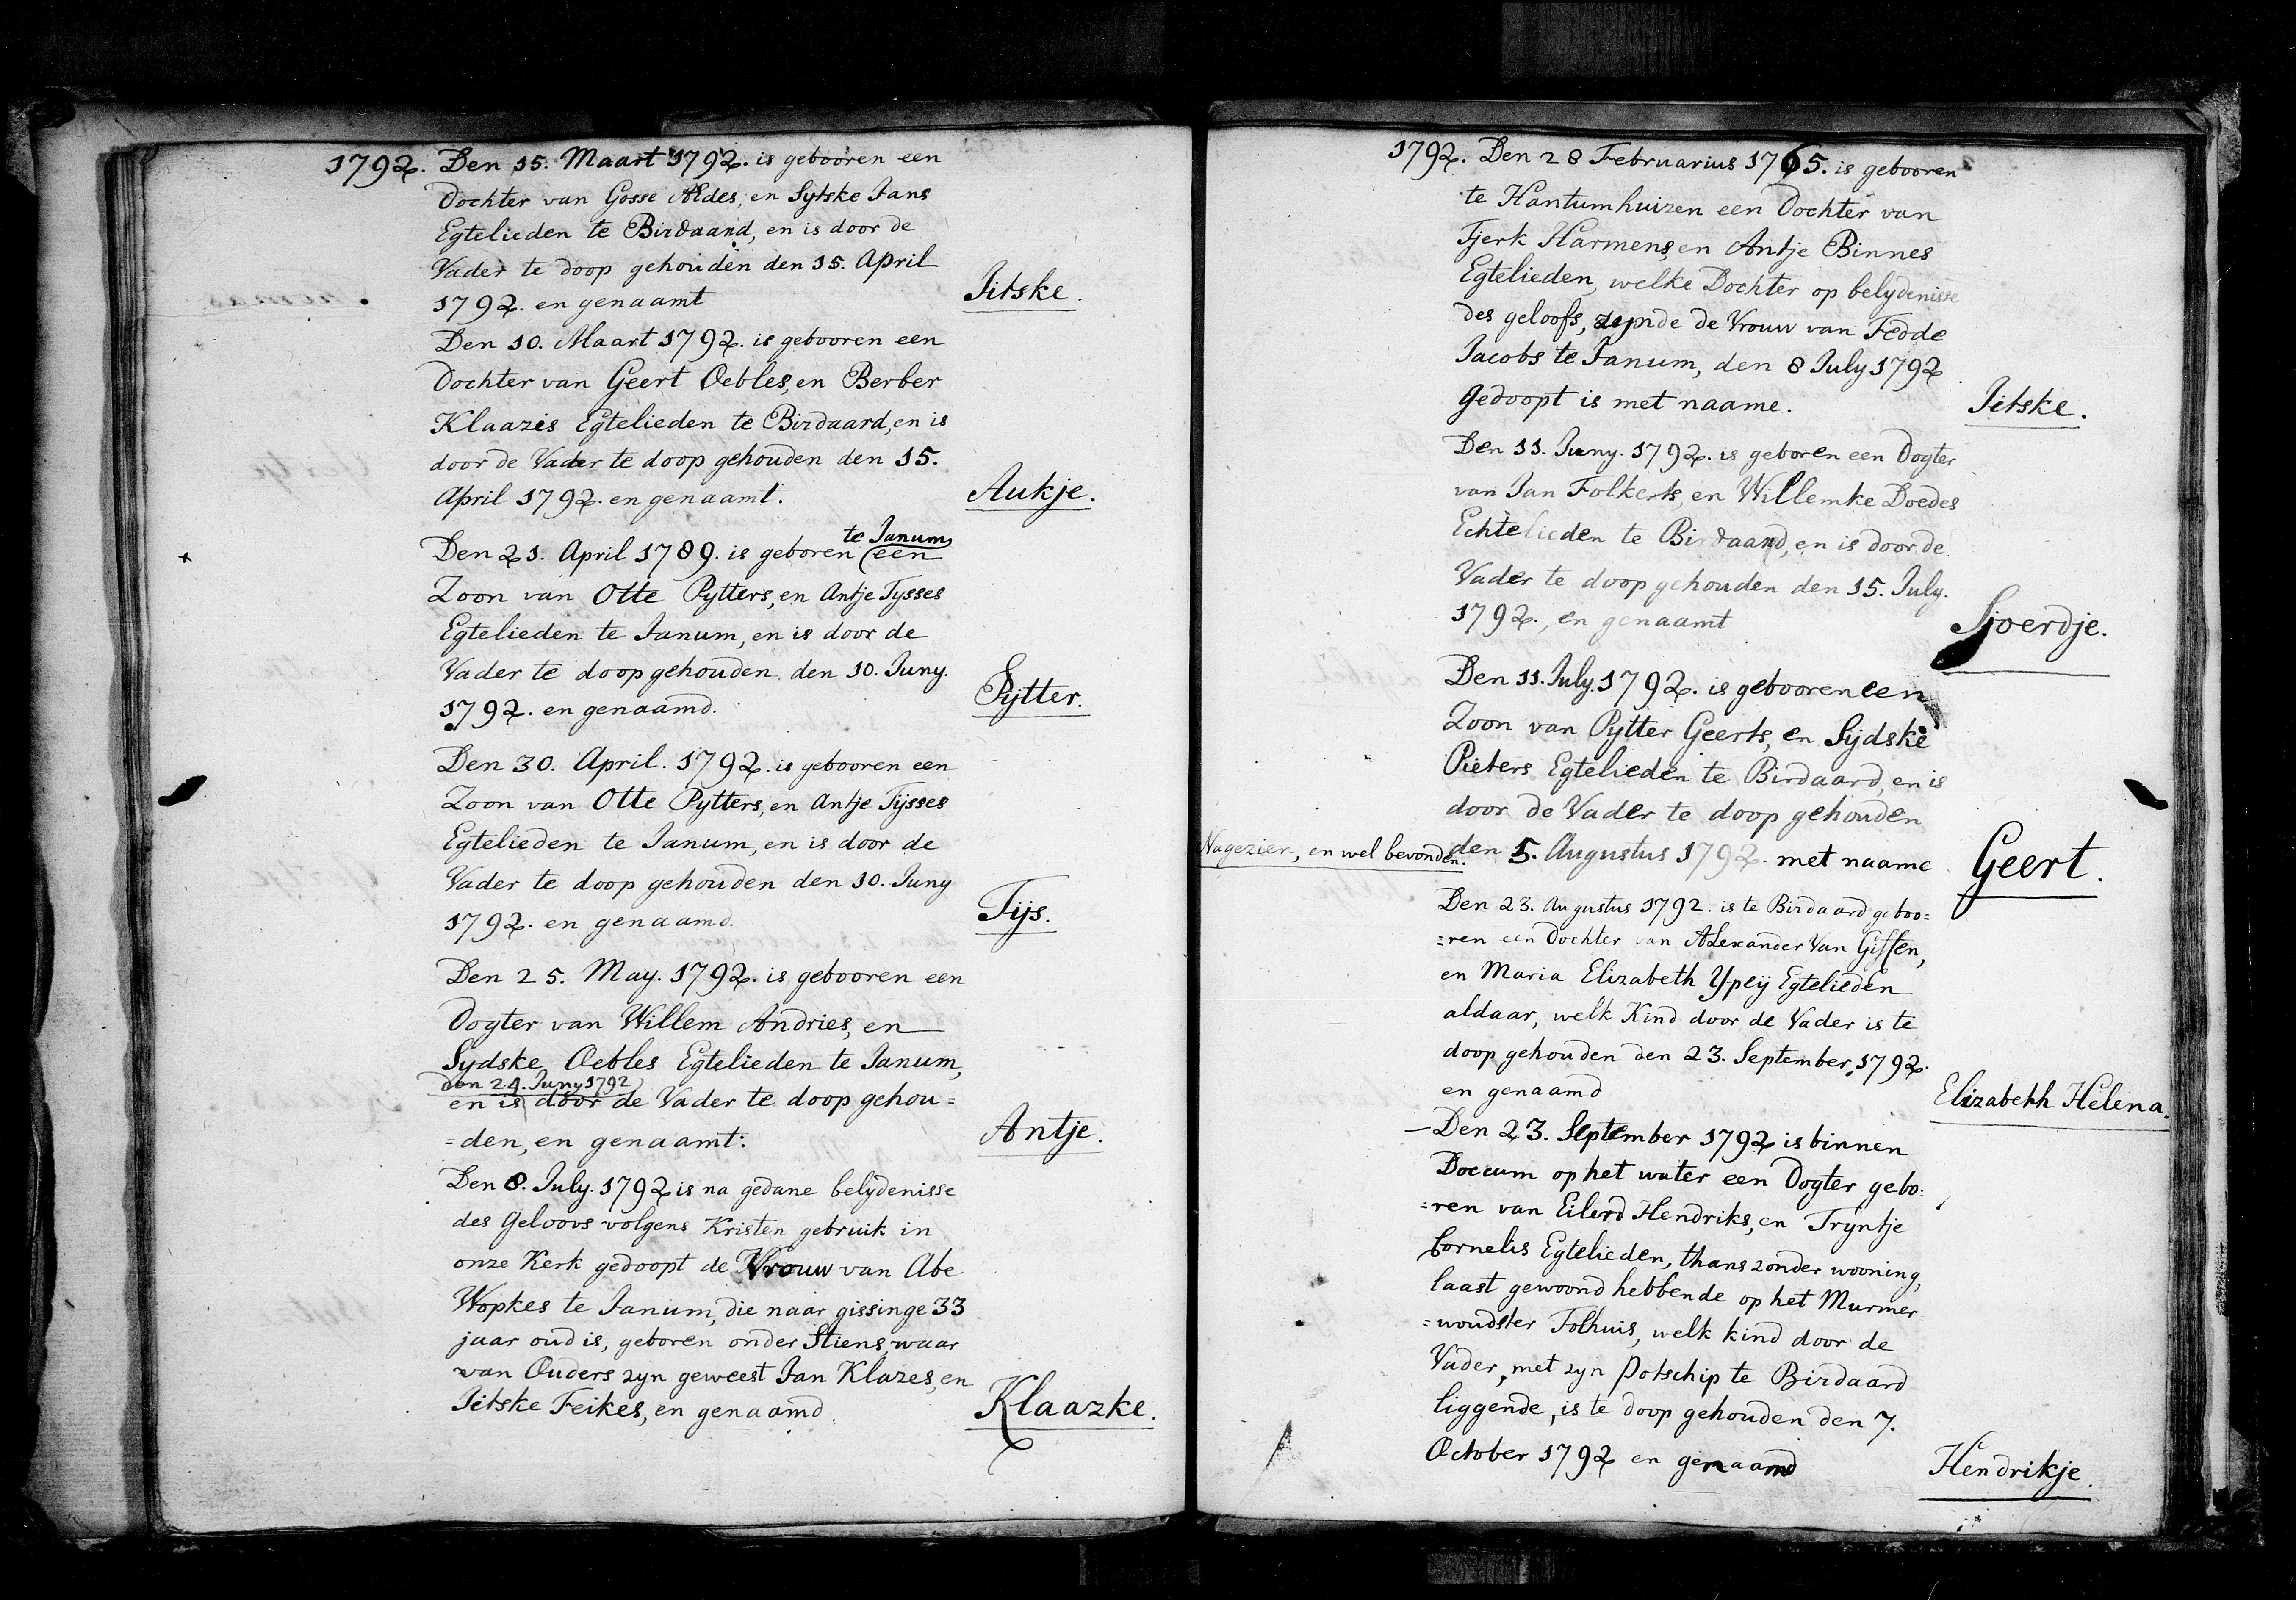 1792. Den 15. Maart 1792. is gebooren een
Dochter van Gosse Aldes, en Sytske Jans
Egtelieden te Birdaard, en is door de
Vader te doop gehouden den 15. April
1792. en genaamt
Jitske.
Den 10. Maart 1792. is gebooren een
Dochter van Geert Oebles, en Berber
Klaazes Egtelieden te Birdaard, en is
door de Vader te doop gehouden den 15.
April 1792. en genaamt.
Aukje.
te Janum
Den 21. April 1789. is geboren (een
Zoon van Otte Pytters, en Antje Tysses
Egtelieden te Janum, en is door de
Vader te doop gehouden den 10. Juny.
1792. en genaamd.
Pytter.
Den 30. April. 1792. is gebooren een
Zoon van Otte Pytters, en Antje Tijsses
Egtelieden te Janum, en is door de
Vader te doop gehouden den 10. Juny
1792. en genaamd.
Tijs.
Den 25. May. 1792. is gebooren een
Dogter van Willem Andries, en
Sydske Oebles Egtelieden te Janum,
den 24. Juny 1792
en is door de Vader te doop gehou=
=den, en genaamt:
Antje.
Den 8. July. 1792 is na gedane belydenisse
des Geloovs volgens Kristen gebruik in
onze Kerk gedoopt de Vrouw van Abe
Wopkes te Janum, die naar gissinge 33
jaar oud is, geboren onder Stiens, waar
van Ouders zyn geweest Jan Klazes, en
Jitske Feikes, en genaamd.
Klaazke.
1792. Den 28 Februarius 1765. is gebooren
te Hantumhuizen een Dochter van
Tjerk Harmens, en Antje Binnes
Egtelieden, welke Dochter op belydenisse
des geloofs, zynde de Vrouw van Fedde
Jacobs te Janum, den 8 July 1792
Gedoopt is met naame.
Jitske.
Den 11. Juny. 1792. is geboren een Dogter
van Jan Folkerts, en Willemke Doedes
Echtelieden te Birdaard, en is door de
Vader te doop gehouden den 15. July.
1792., en genaamt
Sjoerdje.
Den 11. July. 1792. is gebooren een
Zoon van Pytter Geerts, en Sijdske
Pieters Egtelieden te Birdaard, en is
door de Vader te doop gehouden
den 5. Augustus 1792. met naame
Geert.
Nagezien, en wel bevonden.
Den 23. Augustus 1792. is te Birdaard geboo=
=ren een Dochter van Alexander Van Giffen,
en Maria Elizabeth Ypeij Egtelieden
aldaar, welk Kind door de Vader is te
doop gehouden den 23. September, 1792.
en genaamd
Elizabeth Helena.
Den 23. September 1792 is binnen
Doccum op het water een Dogter gebo=
=ren van Eilerd Hendriks, en Tryntje
Cornelis Egtelieden, thans zonder wooning,
laast gewoond hebbende op het Murmer
=woudster Tolhuis, welk kind door de
Vader, met zyn Potschip te Birdaard
liggende, is te doop gehouden den 7.
October 1792 en genaamd
Hendrikje.